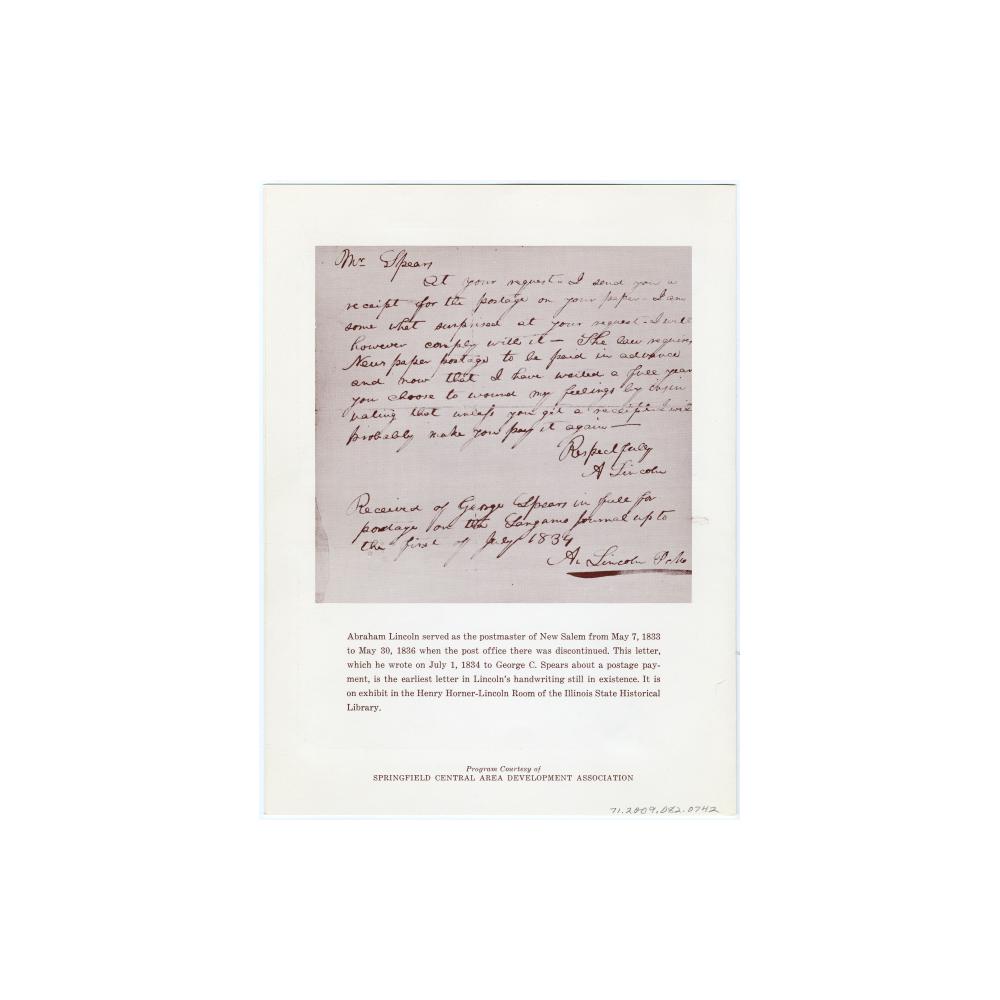 Mr Spears
At your request I send you a
receipt for the postage on your paper - I am
some what surprised at your request - I will
however comply with it — The law requires
News paper postage to be paid in advance
and now that I have waited a full year
you choose to wound my feelings by insin
uating that unless you get a receipt I will
probably make you pay it again —
Respectfully
A Lincoln
Received of George Spears in full for
postage on the Sangamo Journal up to
the first of July 1834
A. Lincoln P.M.
Abraham Lincoln served as the postmaster of New Salem from May 7, 1833
to May 30, 1836 when the post office there was discontinued. This letter,
which he wrote on July 1, 1834 to George C. Spears about a postage pay-
ment, is the earliest letter in Lincoln's handwriting still in existence. It is
on exhibit in the Henry Horner-Lincoln Room of the Illinois State Historical
Library.
Program Courtesy of
SPRINGFIELD CENTRAL AREA DEVELOPMENT ASSOCIATION
71.2009.082.0742